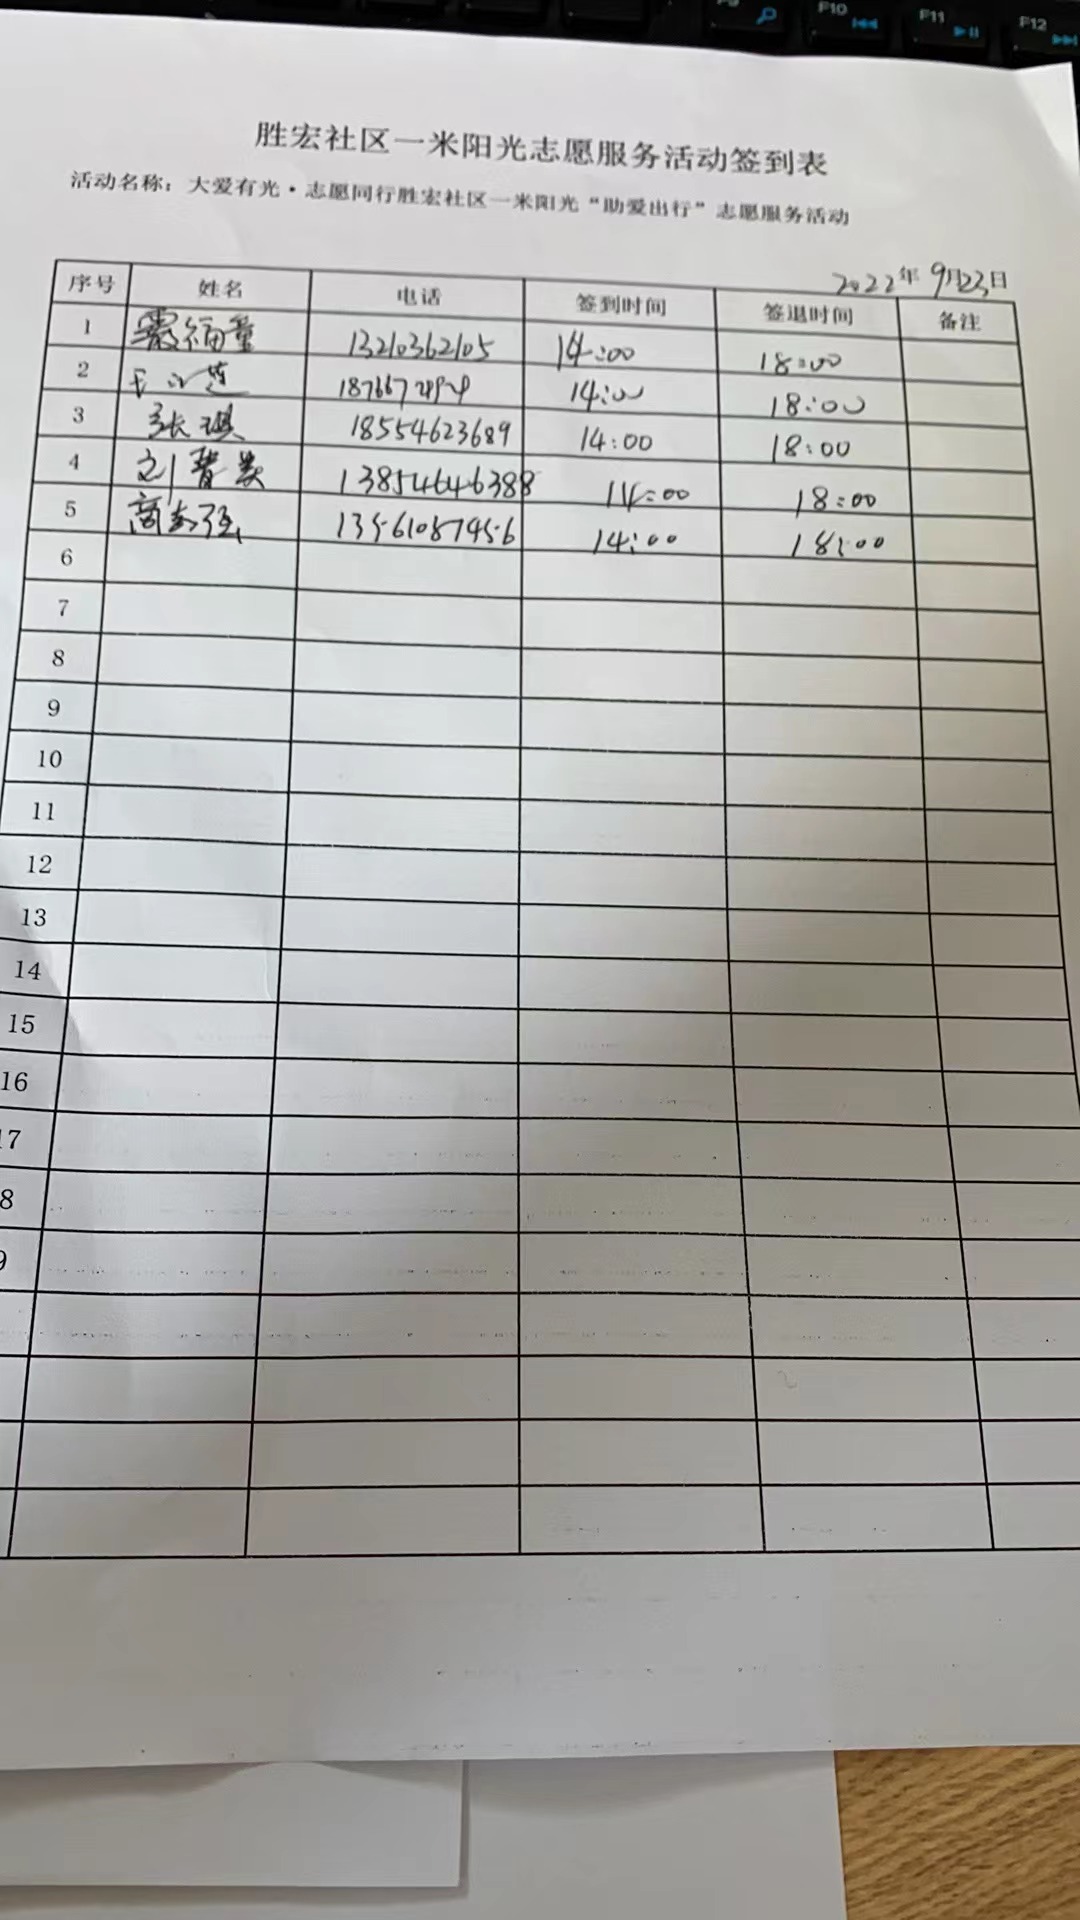 F10
F11
F12
胜宏社区一米阳光志愿服务活动签到表
活动名称：大爱有光·志愿同行胜宏社区一米阳光“助爱出行”志愿服务活动
2022年9月23日
序号 姓名 电话 签到时间 签退时间 备注
1 13210362105 14:00 18:00
2 14:00 18:00
3 张琪 18554623689 14:00 18:00
4 13854646388 14:00 18:00
5 13561087456 14:00 18:00
6
7
8
9
10
11
12
13
14
15
16
17
8
9